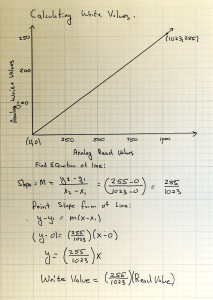 Calculating Write Values.
(1023,255)
250
200
100
Analog Write Values
(0,0)
250
500
750
1000
Analog Read Values
Find Equation of Line:
Slope = M = y₂-y₁ / x₂-x₁ = (255-0 / 1023-0) = 255 / 1023
Point Slope form of Line:
y-y₁ = m(x-x₁)
(y-0) = (255/1023)(x-0)
y = (255/1023)x
Write Value = (255/1023)(Read Value)